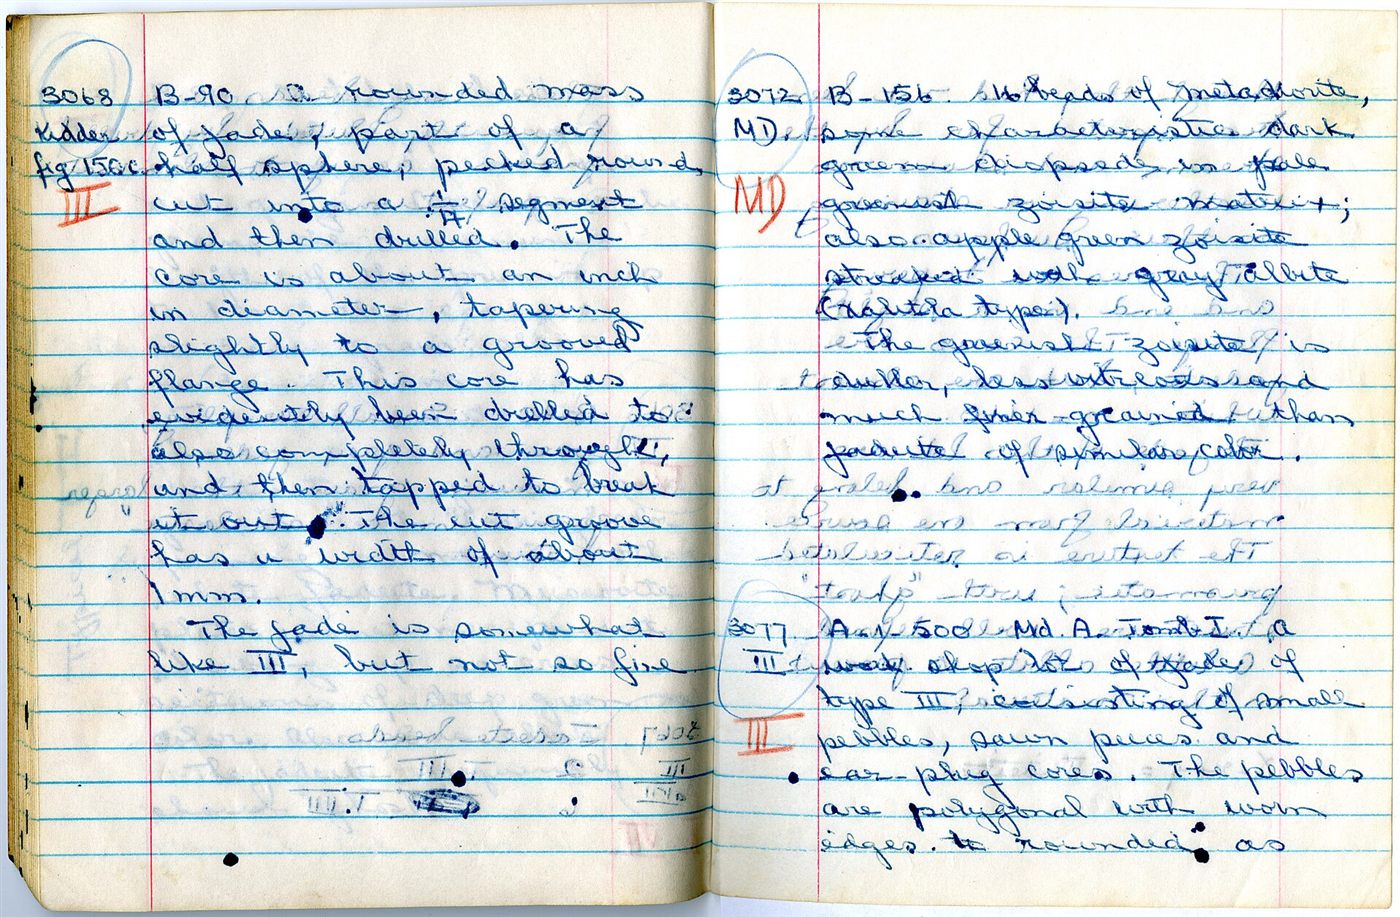 3068 B-90 A rounded mass
Kidder of jade, part of a
fig 156c half sphere, pecked round,
III cut into a 1/4 segment
and then drilled. The
core is about an inch
in diameter, tapering
slightly to a grooved
flange. This core has
evidently been drilled to
also completely through,
and then tapped to break
it out. The cut groove
has a width of about
1 mm.
The jade is somewhat
like III, but not so fine
3072 B-156. 16 beads of metadiorite,
MD. some characteristic dark
green diopside in pale
MD greenish zoisite matrix;
also apple green zoisite
streaked with gray albite
type).
The greenish zoisite is
duller, less vitreous and
much finer grained than
jadeite of similar color.
3077 A-1-500 Md. A. Tomb I. a
III work shop lot of jade of
type III, consisting of small
III pebbles, sawn pieces and
ear-plug cores. The pebbles
are polygonal with worn
edges to rounded; as